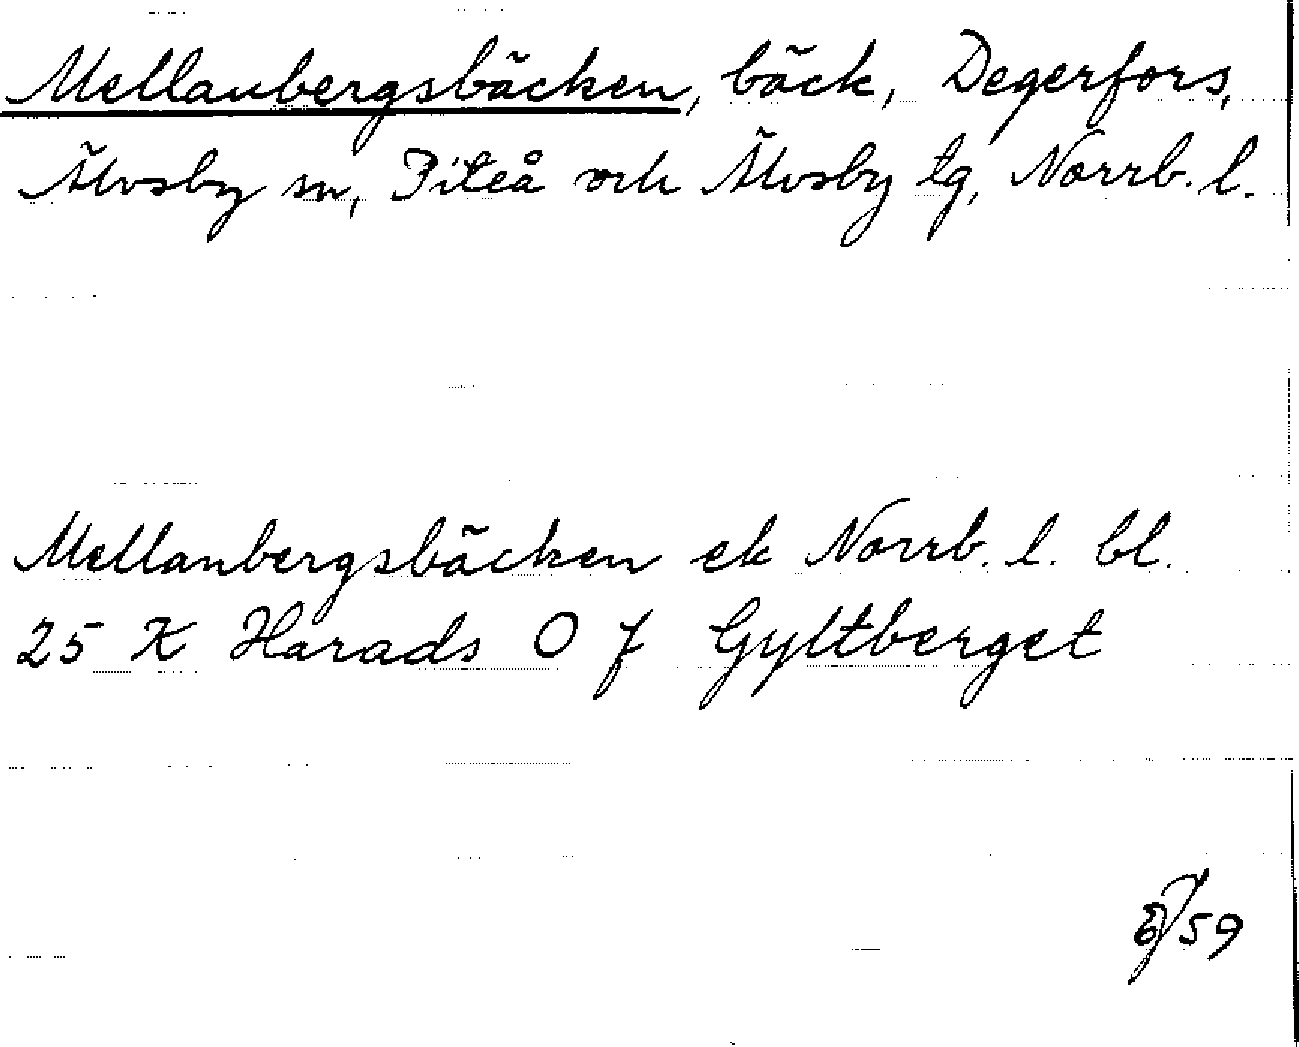 Mellanbergsbäcken, bäck, Degerfors,
Älvsby sn, Piteå och Älvsby tg, Norrb. l.
Mellanbergsbäcken ek Norrb. l. bl.
25 K Harads O f Gyltberget
59